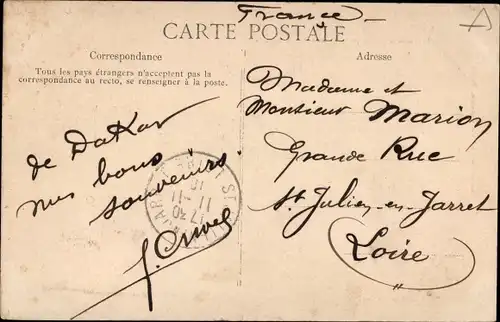 France
CARTE POSTALE
Correspondance
Tous les pays étrangers n'acceptent pas la
correspondance au recto, se renseigner à la poste.
de Dakar
nos bons
souvenirs.
Adresse
Madame et
Monsieur Marion
Grande Rue
St Julien-en-Jarret
Loire
17 30
11 - 11